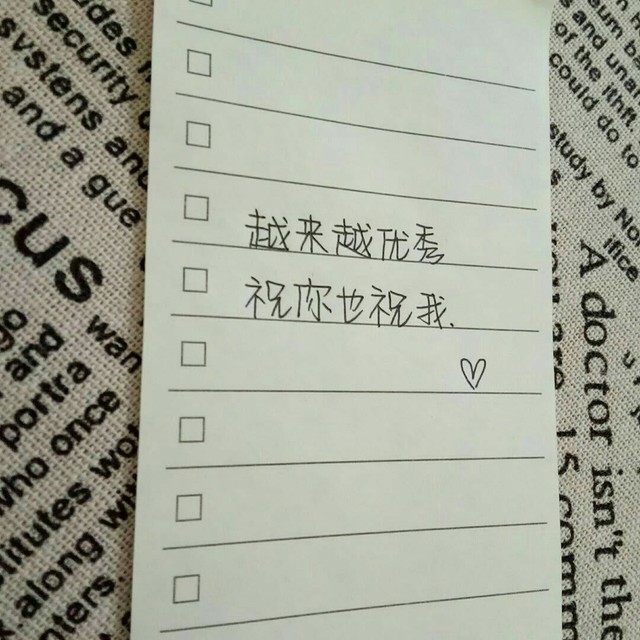 越来越优秀
祝你也祝我.
♡
security
systens and
and a gue
cus
wan
and
portra
who once
along wi
and und
of the ith
could do to
study by No
A doctor isn't the
is comm